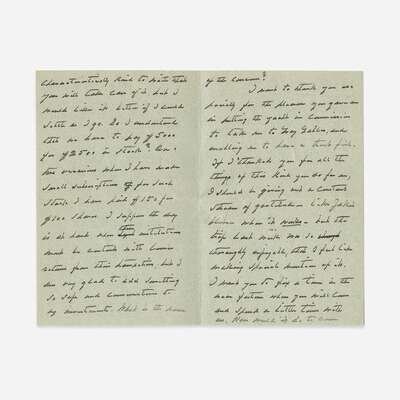 characteristically kind to write that
you will take care of it, but I
would like it better if I could
settle as I go. Do I understand
that we have to pay $5000
for $2500 in stock? On
two occasions when I have made
small subscriptions for such
stock I have paid $150 for
$100 share. I suppose the day
is at hand when institutions
must be content with
return from their , but I
am very glad to add something
so safe and to
my investments. What is the name
of the concern?
I want to thank you es-
pecially for the pleasure you gave me
in putting the yacht in commission
to take me to , and
enabling me to have a fish.
If I thanked you for all the
things of this kind you do for me,
I should be giving out a constant
stream of like
when it works - but the
trip back with me so
thoroughly enjoyable, that I feel like
making special mention of it.
I want you to fix a time in the
near future when you will come
and spend a little time with
me. How would it do to come